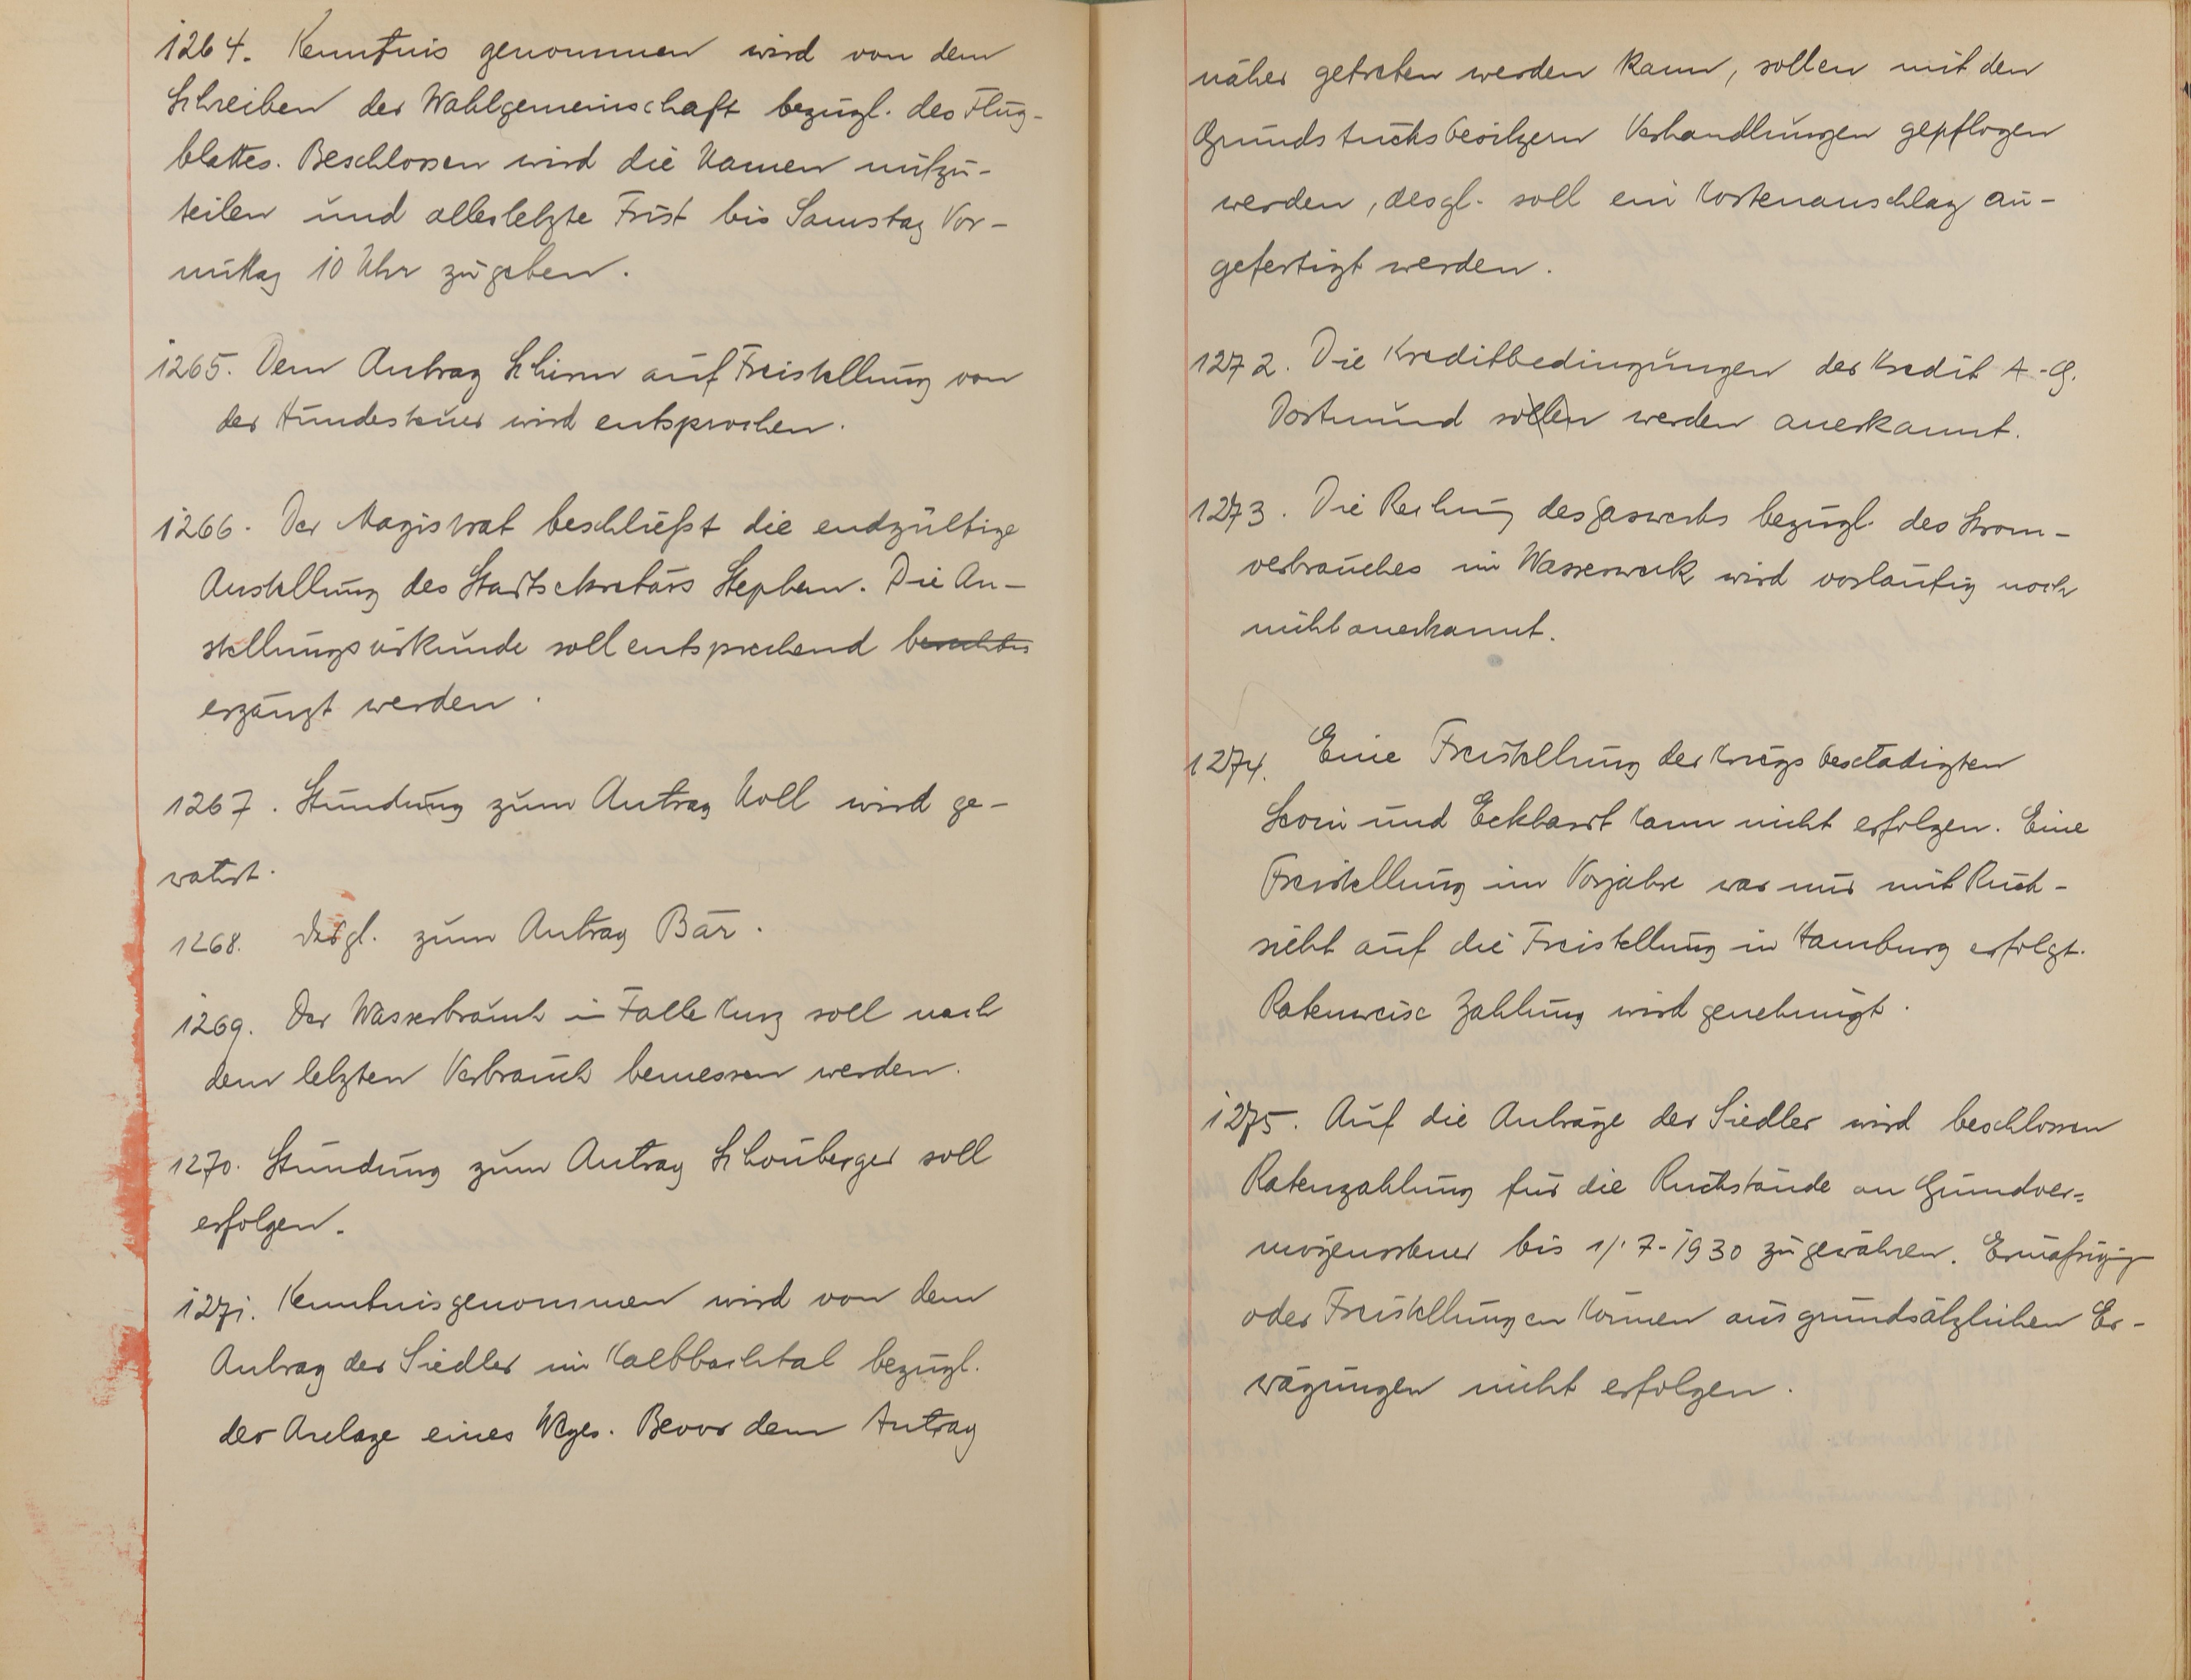 1264. Kenntnis genommen wird von dem
Schreiben der Wahlgemeinschaft bezügl. des Flug-
blattes. Beschlossen wird die Namen mitzu-
teilen und allerletzte Frist bis Samstag Vor-
mittag 10 Uhr zu geben.
1265. Dem Antrag Schirm auf Freistellung von
der Hundesteuer wird entsprochen.
1266. Der Magistrat beschließt die endgültige
Anstellung des Stadtsekretärs Stephan. Die An-
stellungsurkunde soll entsprechend
ergänzt werden.
1267. Stundung zum Antrag Noll wird ge-
währt.
1268. desgl. zum Antrag Bär.
1269. Der Wasserbrauch in Falle Kurz soll nach
dem letzten Verbrauch bemessen werden.
1270. Stundung zum Antrag Schönberger soll
erfolgen.
1271. Kenntnis genommen wird von dem
Antrag der Siedler im Kaltbachtal bezügl.
der Anlage eines Weges. Bevor dem Antrag
näher getreten werden kann, sollen mit den
Grundstücksbesitzern Verhandlungen gepflogen
werden, desgl. soll ein Kostenanschlag an-
gefertigt werden.
1272. Die Kreditbedingungen der Kredit A.-G.
Dortmund sollen werden anerkannt.
1273. Die Rechnung des Gaswerks bezügl. des Strom-
verbrauches im Wasserwerk wird vorläufig noch
nicht anerkannt.
1274. Eine Freistellung der Kriegsbeschädigten
und Eckhardt kann nicht erfolgen. Eine
Freistellung im Vorjahre war nur mit Rück-
sicht auf die Freistellung in Hamburg erfolgt.
Ratenweise Zahlung wird genehmigt.
1275. Auf die Anträge der Siedler wird beschlossen
Ratenzahlung für die Rückstände an Grundver=
mögenssteuer bis 1/. 7-1930 zu gewähren. Ermäßigung
oder Freistellungen können aus grundsätzlichen Er-
wägungen nicht erfolgen.